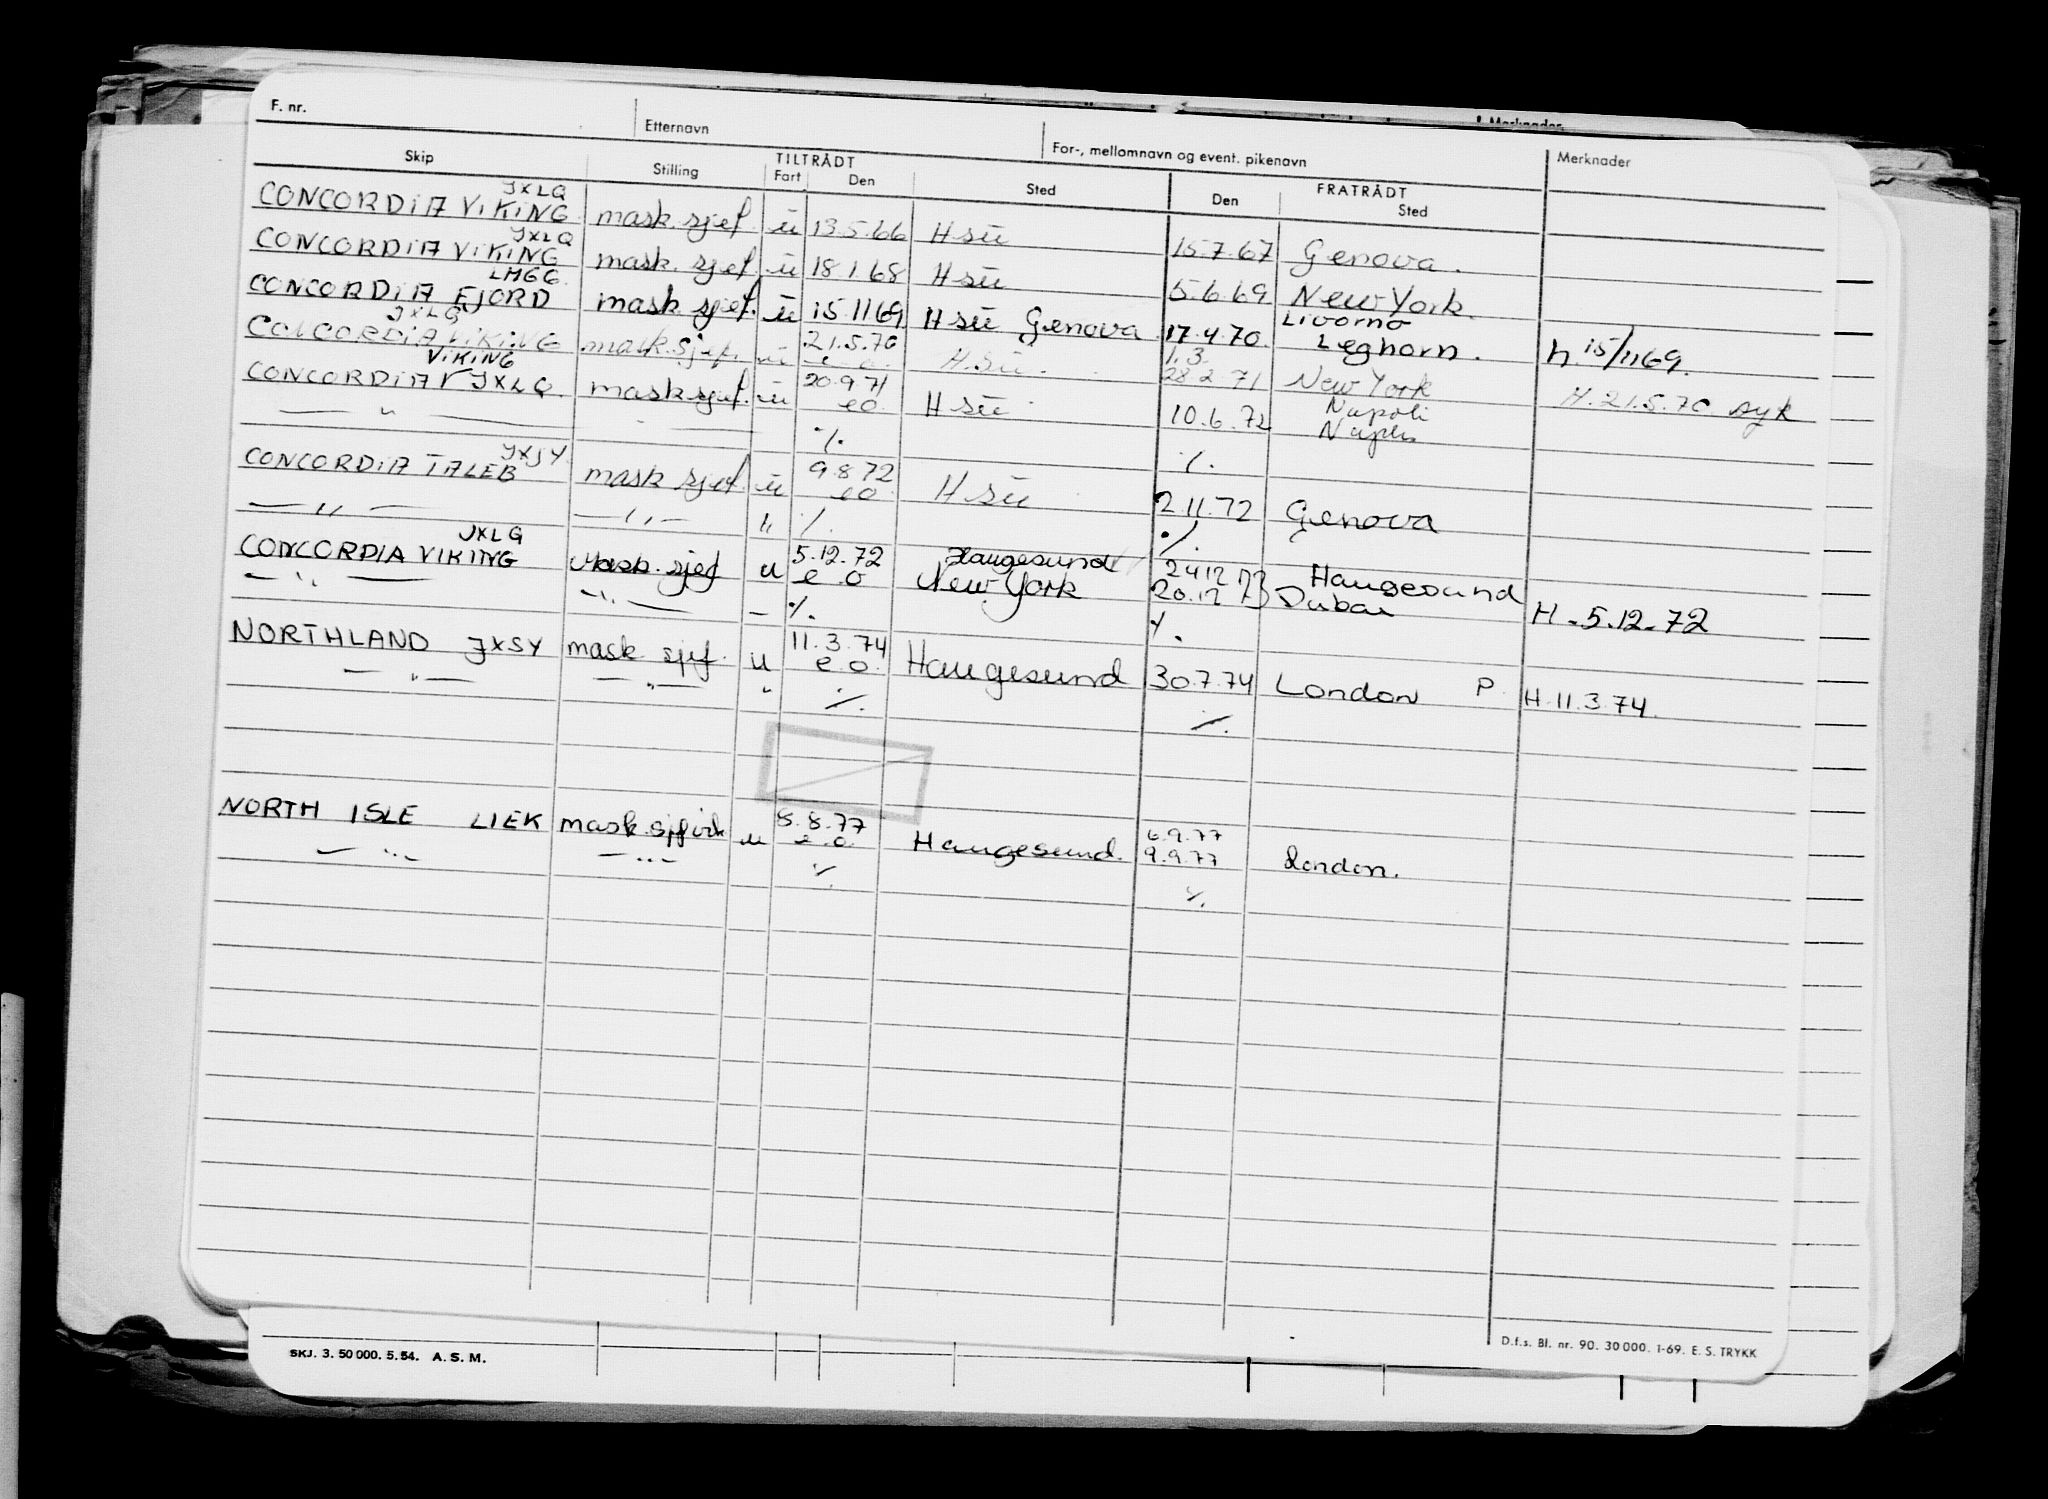 Merknader
F. nr. Etternavn For-, mellomnavn og event. pikenavn Merknader
Skip Stilling TILTRÅDT Fart Den Sted FRATRÅDT Den Sted
JXLQ
CONCORDIA VIKING mask. sjef ü 13.5.66 Hsü 15.7.67 Genova.
JXLQ
CONCORDIA VIKING mask. sjef ü 18.1.68 Hsü 5.6.69 New York.
LMGG
CONCORDIA FJORD mask sjef. ü 15.1169 Hsü Genova 17.4.70. Livorno Leghorn. h. 15/1169.
JXLQ
CONCORDIA VIKING mask. sjef. ü 21.5.70 e o. H.sü. 1.3. 28.2.71 New York H. 21.5.70 syk
VIKING
CONCORDIA V JXLQ. mask sjef. ü 20.9.71 eo. Hsü 10.6.72 Napoli Naples
— " — — " — ./. ./.
JXSY
CONCORDIA TALEB mask sjef. ü 9.8.72 eo. Hsü 2.11.72 Genova
— ,, — — ,, — ,, ./. ./.
JXLQ
CONCORDIA VIKING Mask. sjef u 5.12.72 e o Haugesund New York 24.12.73 20.12.73 Haugesund Dubai H. 5.12.72
— " — — " — – ./. ./.
NORTHLAND JXSY mask. sjef. u 11.3.74 e.o. Haugesund 30.7.74 London P. H. 11.3.74.
— " — — " — " ./. ./.
NORTH ISLE LIEK mask. sjef u 8.77 e.o. Haugesund. 6.9.77 9.9.77 London.
— " — — " — ./. ./.
D.f.s. Bl. nr. 90. 30 000. 1-69. E. S. TRYKK
SKJ. 3. 50 000. 5. 54. A. S. M.